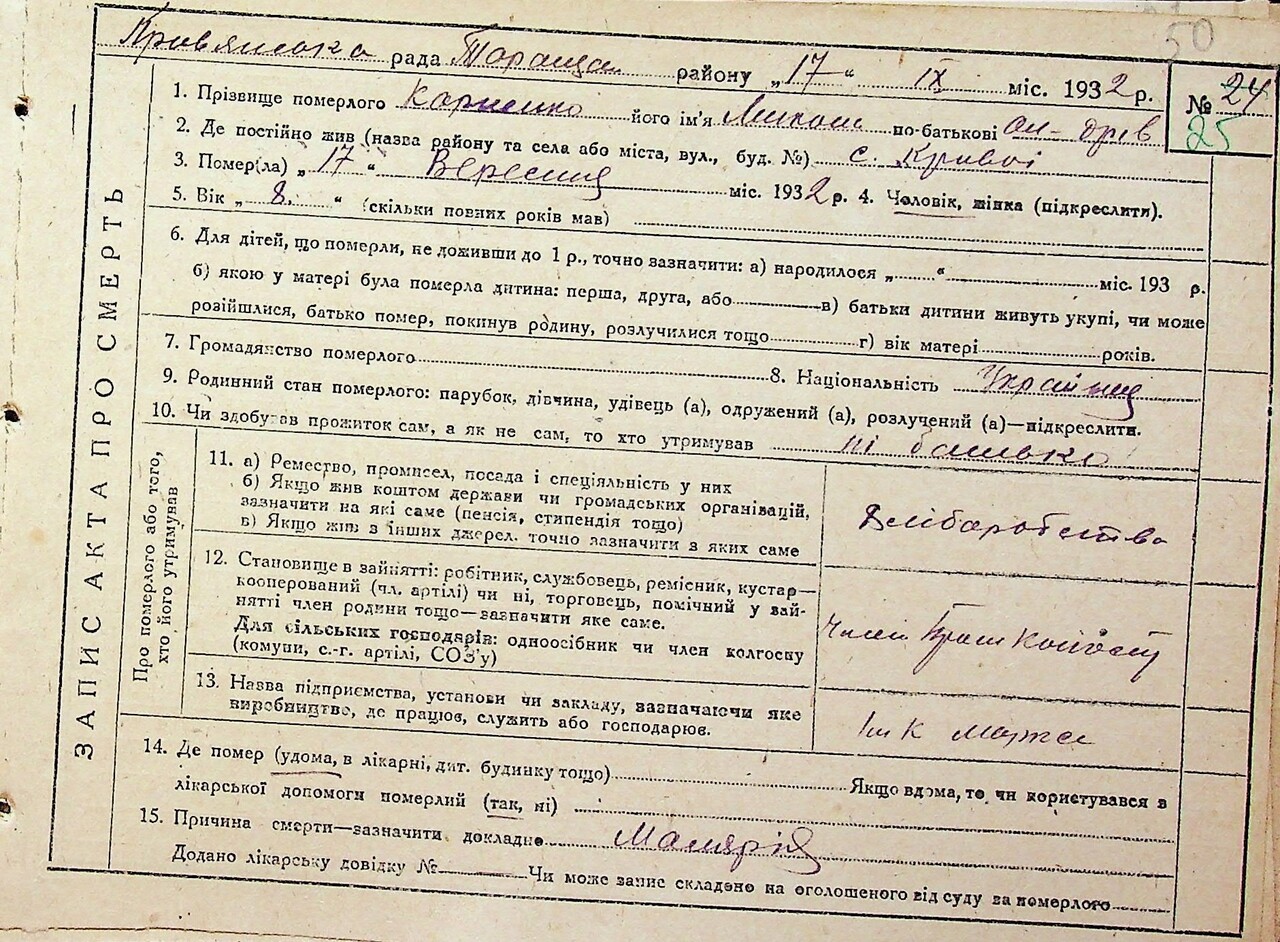 50
Кривянська рада Таращан району „17“ IX міс. 1932 р.
№ 24
25
1. Прізвище померлого Карпенко його ім'я Микола по-батькові Ан-дрів
2. Де постійно жив (назва району та села або міста, вул., буд. №) с. Криве
3. Помер(ла) „17“ Вересня міс. 1932 р. 4. Чоловік, жінка (підкреслити).
5. Вік „8.“ (скільки повних років мав)
6. Для дітей, що померли, не доживши до 1 р., точно зазначити: а) народилося „ “ міс. 193 р.
б) якою у матері була померла дитина: перша, друга, або в) батьки дитини живуть укупі, чи може
розійшлися, батько помер, покинув родину, розлучилися тощо г) вік матері років.
7. Громадянство померлого 8. Національність
9. Родинний стан померлого: парубок, дівчина, удівець (а), одружений (а), розлучений (а)—підкреслити.
10. Чи здобував прожиток сам, а як не сам, то хто утримував ні батько
ЗАПИС АКТА ПРО СМЕРТЬ
Про померлого або того,
хто його утримував
11. а) Ремество, промисел, посада і спеціяльність у них
б) Якщо жив коштом держави чи громадських організацій,
зазначити на які саме (пенсія, стипендія тощо)
в) Якщо жив з інших джерел. точно зазначити з яких саме
Хліборобство
12. Становище в зайнятті: робітник, службовець, ремісник, кустар—
кооперований (чл. артілі) чи ні, торговець, помічний у зай-
нятті член родини тощо—зазначити яке саме.
Для сільських господарів: одноосібник чи член колгоспу
(комуни, с.-г. артілі, СОЗ'у)
Член
13. Назва підприємства, установи чи закладу, зазначаючи яке
виробництво, де працює, служить або господарює.
Ім К Маркса
14. Де помер (удома, в лікарні, дит. будинку тощо) Якщо вдома, то чи користувався з
лікарської допомоги померлий (так, ні)
15. Причина смерти—зазначити докладно Малярія
Додано лікарську довідку № Чи може запис складено на оголошеного від суду за померлого